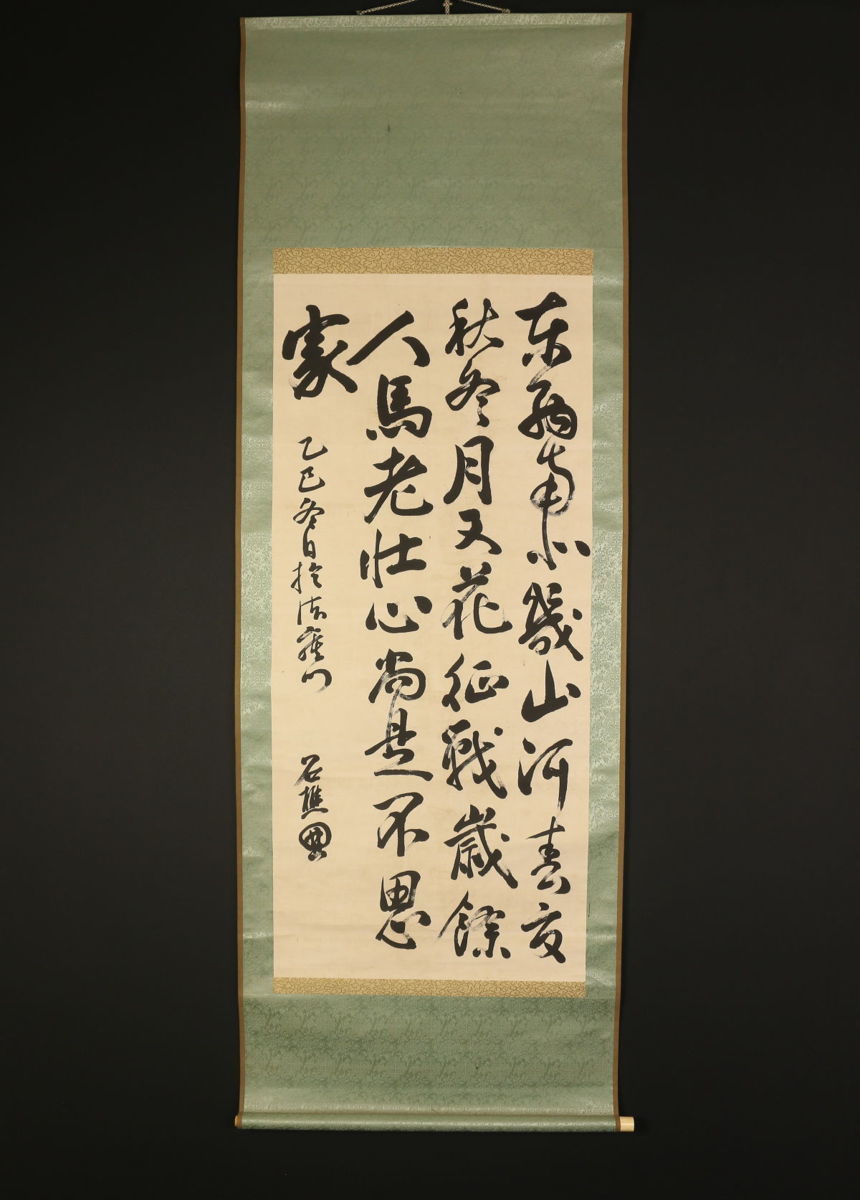 東西南北幾山河春夏
秋冬月又花征戦歳餘
人馬老壮心尚是不思
家
乙巳冬日於法庫門
石樵